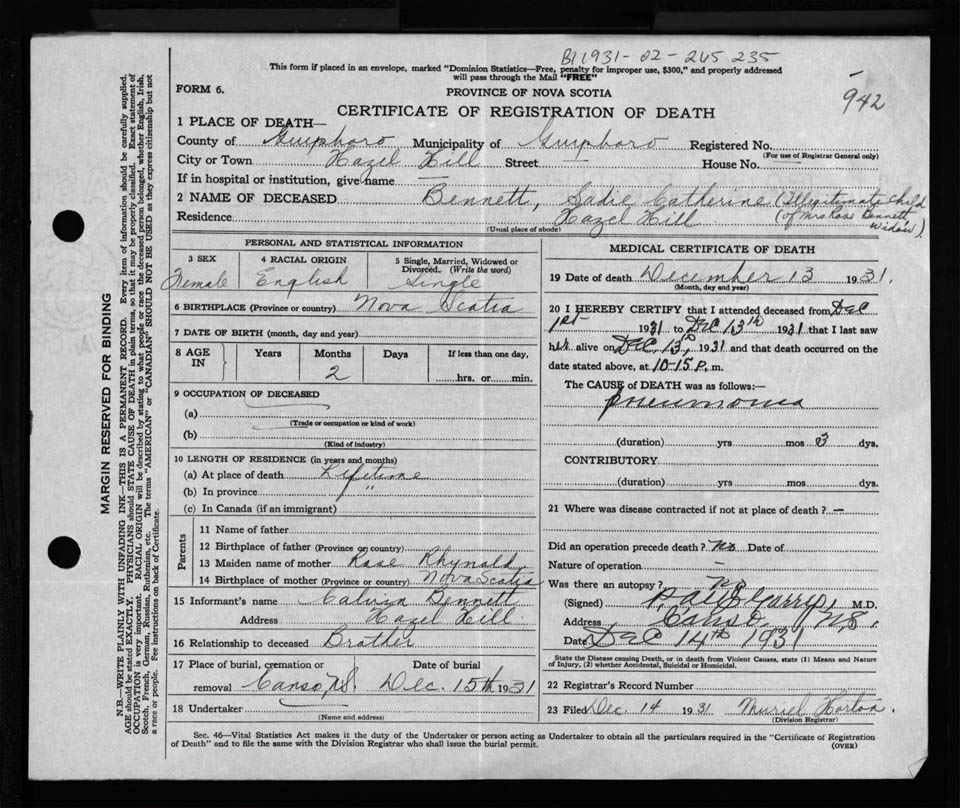 B1 1931-02-265 235
This form if placed in an envelope, marked "Dominion Statistics—Free, penalty for improper use, $300," and properly addressed
will pass through the Mail "FREE"
942
FORM 6.
PROVINCE OF NOVA SCOTIA
CERTIFICATE OF REGISTRATION OF DEATH
1 PLACE OF DEATH—
County of Guysboro Municipality of Guysboro Registered No.
(For use of Registrar General only)
City or Town Hazel Hill Street — House No. —
If in hospital or institution, give name —
2 NAME OF DECEASED Bennett, Sadie Catherine (Illegitimate child
of Mrs Rose Bennett
widow).
Residence Hazel Hill
(Usual place of abode)
PERSONAL AND STATISTICAL INFORMATION
3 SEX 4 RACIAL ORIGIN 5 Single, Married, Widowed or
Divorced. (Write the word)
Female English Single
6 BIRTHPLACE (Province or country) Nova Scotia
7 DATE OF BIRTH (month, day and year)
8 AGE IN Years Months Days If less than one day,
2 hrs. or min.
9 OCCUPATION OF DECEASED
(a)
(Trade or occupation or kind of work)
(b)
(Kind of industry)
10 LENGTH OF RESIDENCE (in years and months)
(a) At place of death Lifetime
(b) In province "
(c) In Canada (if an immigrant)
Parents
11 Name of father
12 Birthplace of father (Province or country)
13 Maiden name of mother Rose Rhynold
14 Birthplace of mother (Province or country) Nova Scotia
15 Informant's name Calvin Bennett
Address Hazel Hill
16 Relationship to deceased Brother
17 Place of burial, cremation or Date of burial
removal Canso, N.S. Dec. 15th 1931
18 Undertaker
(Name and address)
MEDICAL CERTIFICATE OF DEATH
19 Date of death December 13 1931.
(Month, day and year)
20 I HEREBY CERTIFY that I attended deceased from Dec
1st 1931 to Dec 13th 1931 that I last saw
her alive on Dec 13th, 1931 and that death occurred on the
date stated above, at 10-15 P. m.
The CAUSE of DEATH was as follows:—
Pneumonia
(duration) yrs mos 3 dys.
CONTRIBUTORY
(duration) yrs mos dys.
21 Where was disease contracted if not at place of death? —
Did an operation precede death? No Date of
Nature of operation —
Was there an autopsy? No
(Signed) M.D.
Address Canso N.S.
Date Dec 14th 1931
State the Disease causing Death, or in death from Violent Causes, state (1) Means and Nature
of Injury, (2) whether Accidental, Suicidal or Homicidal.
22 Registrar's Record Number
23 Filed Dec 14 1931 Muriel Horton.
(Division Registrar)
Sec. 46—Vital Statistics Act makes it the duty of the Undertaker or person acting as Undertaker to obtain all the particulars required in the "Certificate of Registration
of Death" and to file the same with the Division Registrar who shall issue the burial permit.
(OVER)
MARGIN RESERVED FOR BINDING
N.B.—WRITE PLAINLY WITH UNFADING INK—THIS IS A PERMANENT RECORD. Every item of information should be carefully supplied.
AGE should be stated EXACTLY. PHYSICIANS should STATE CAUSE OF DEATH in plain terms, so that it may be properly classified. Exact statement of
OCCUPATION is very important. RACIAL ORIGIN will be described by stating to what people or race the deceased person belonged, whether English, Irish,
Scotch, French, German, Russian, Ruthenian, etc. The terms "AMERICAN" or "CANADIAN" SHOULD NOT BE USED as they express citizenship but not
a race or people. See instructions on back of Certificate.